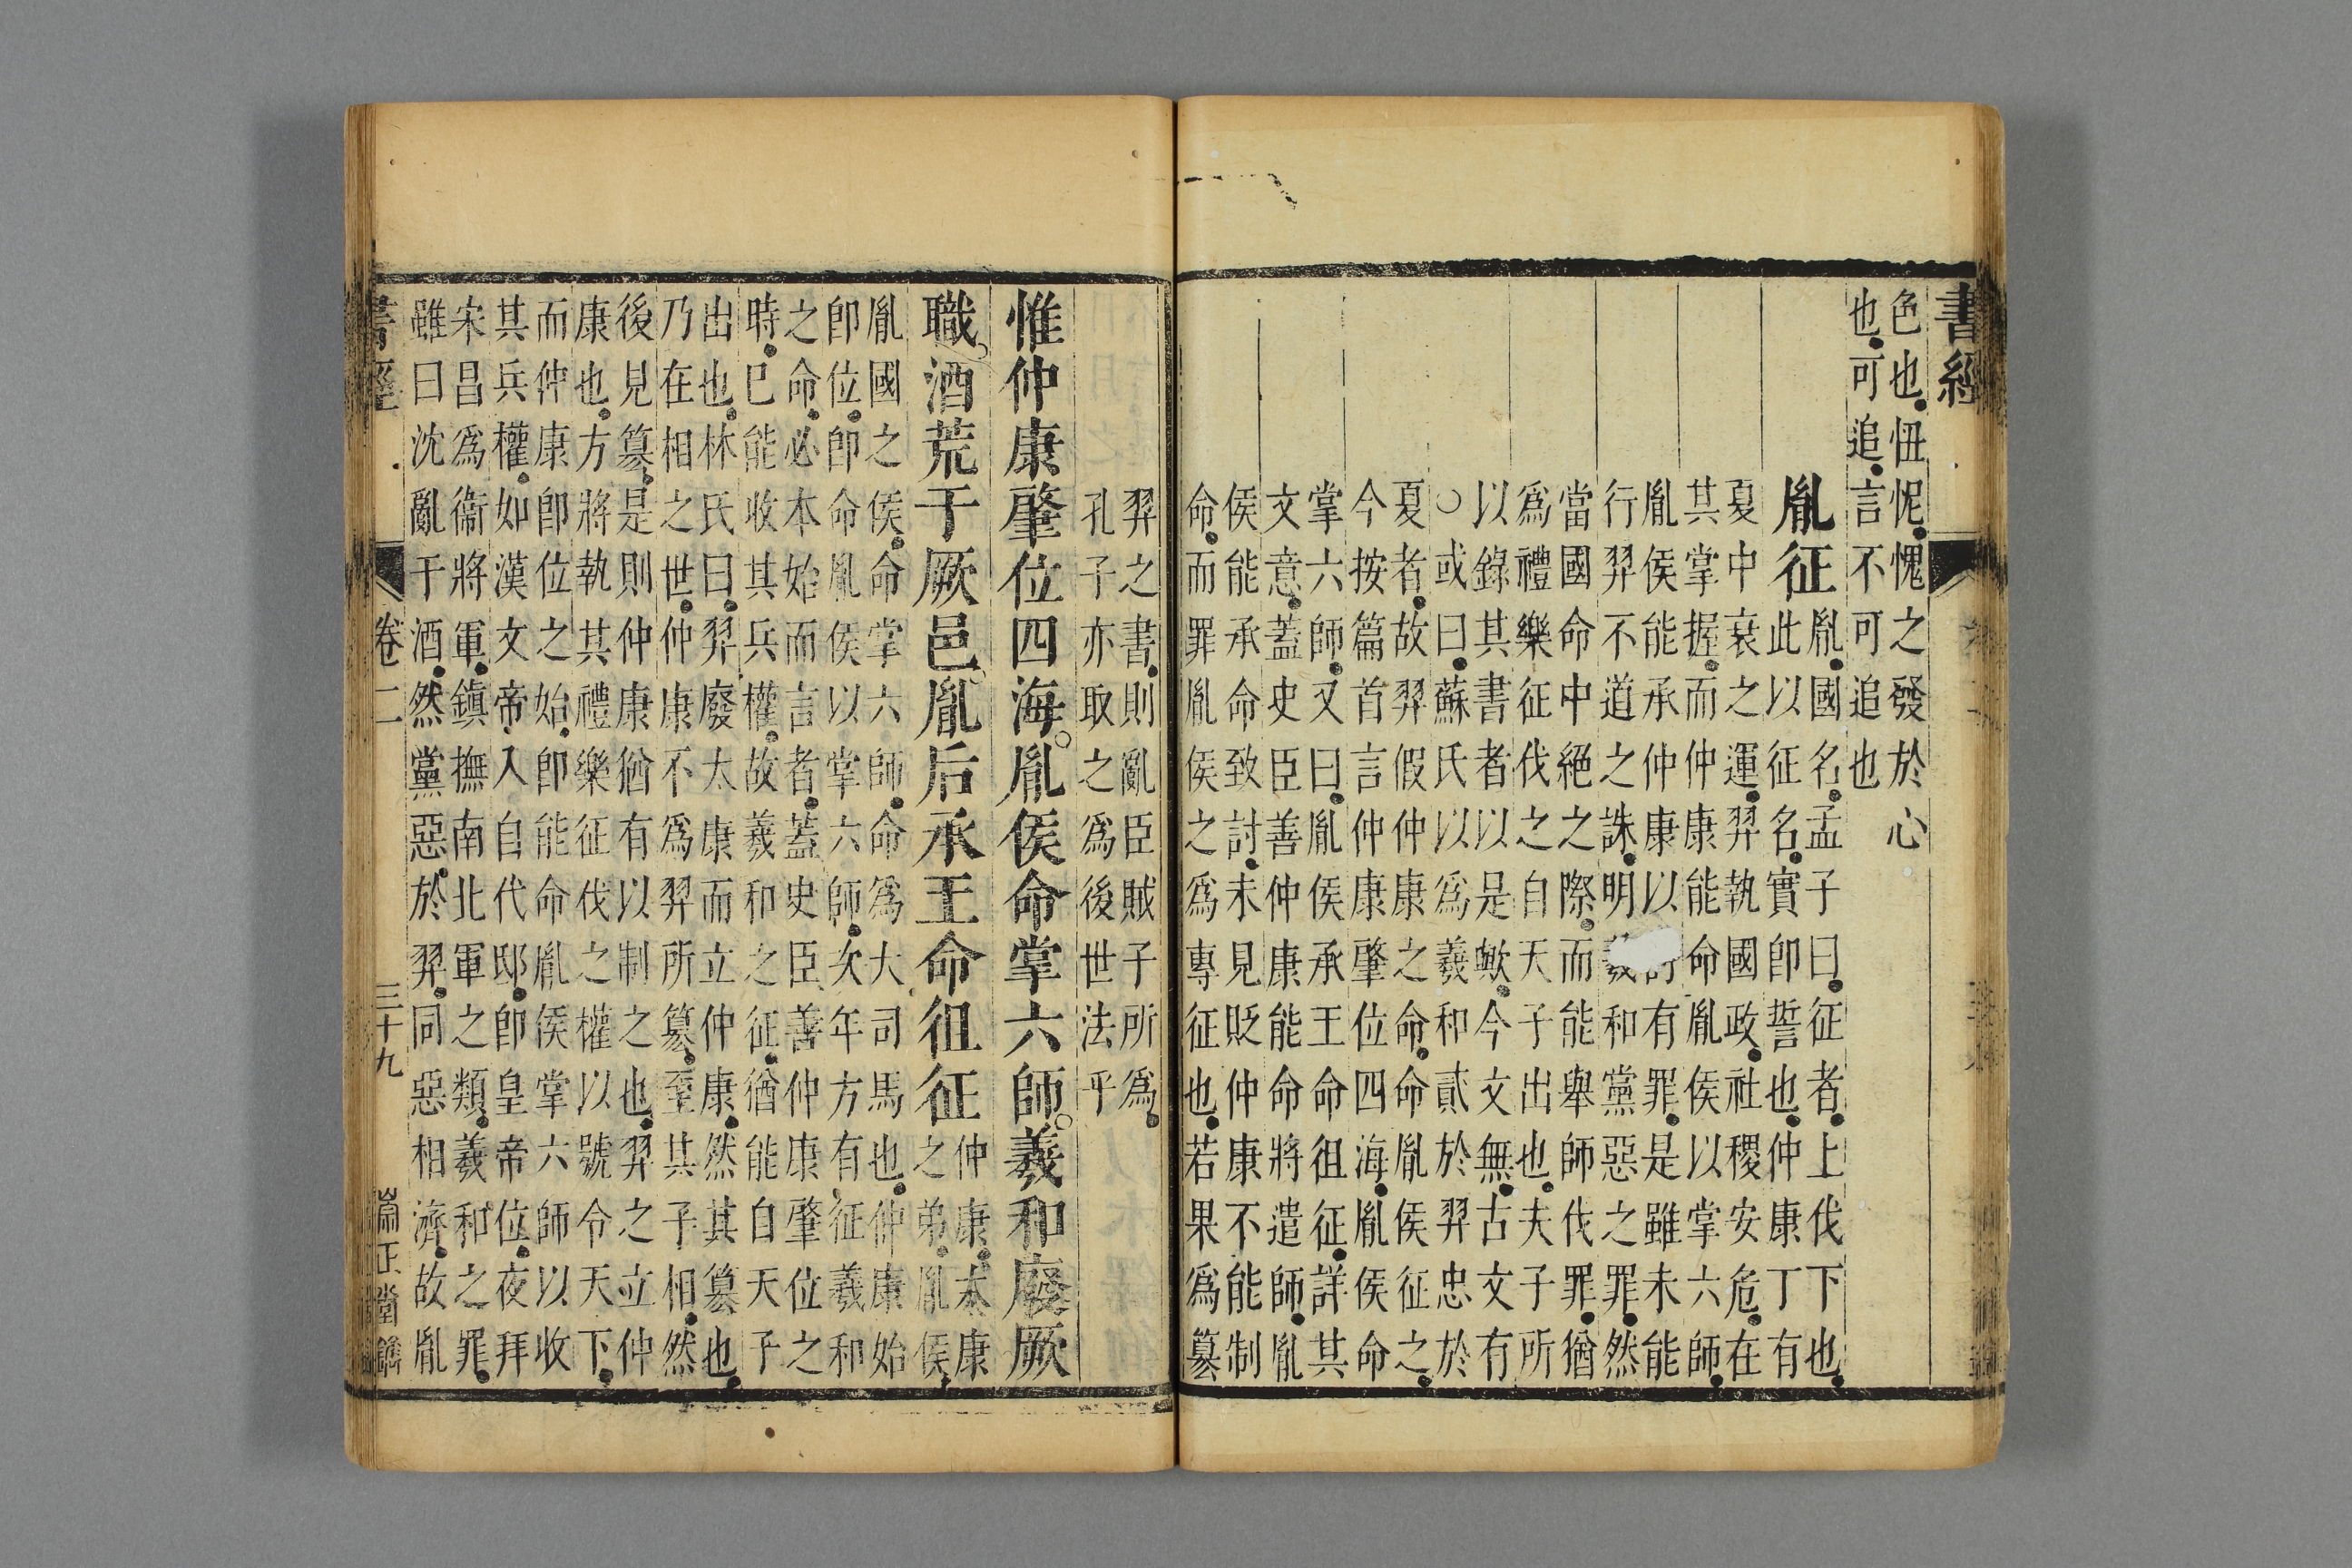 書經
色也忸怩愧之發於心
也可追言不可追也
胤征
胤國名孟子曰征者上伐下也
此以征名實卽誓也仲康丁有
夏中衰之運羿執國政社稷安危在
其掌握而仲康能命胤侯以掌六師
胤侯能承仲康以討有罪是雖未能
行羿不道之誅明羲和黨惡之罪然
當國命中絕之際而能舉師伐罪猶
爲禮樂征伐之自天子出也夫子所
以錄其書者以是歟今文無古文有
○或曰蘇氏以爲羲和貳於羿忠於
夏者故羿假仲康之命命胤侯征之
今按篇首言仲康肇位四海胤侯命
掌六師又曰胤侯承王命徂征詳其
文意蓋史臣善仲康能命將遣師胤
侯能承命致討未見貶仲康不能制
命而罪胤侯之爲專征也若果爲篡
羿之書則亂臣賊子所爲
孔子亦取之爲後世法乎
惟仲康肇位四海胤侯命掌六師羲和廢厥
職酒荒于厥邑胤后承王命徂征
仲康太康
之弟胤侯
胤國之侯命掌六師命爲大司馬也仲康始
卽位卽命胤侯以掌六師次年方有征羲和
之命必本始而言者蓋史臣善仲康肇位之
時已能收其兵權故羲和之征猶能自天子
出也林氏曰羿廢太康而立仲康然其篡也
乃在相之世仲康不爲羿所篡至其子相然
後見篡是則仲康猶有以制之也羿之立仲
康也方將執其禮樂征伐之權以號令天下
而仲康卽位之始卽能命胤侯掌六師以收
其兵權如漢文帝入自代邸卽皇帝位夜拜
宋昌爲衞將軍鎭撫南北軍之類羲和之罪
雖曰沈亂于酒然黨惡於羿同惡相濟故胤
書經
卷二
三十九